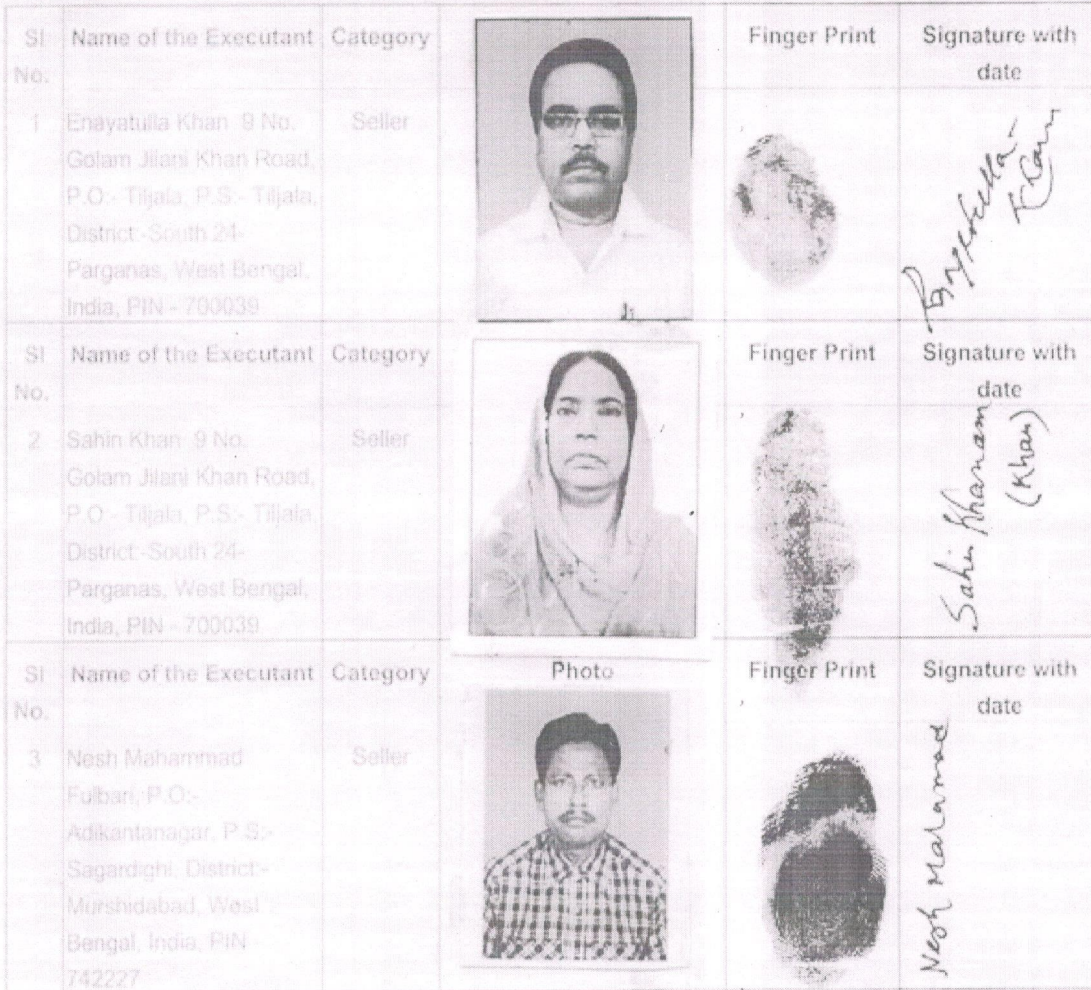 Sl No. Name of the Executant Category Finger Print Signature with date
1 Enayatulla Khan 9 No. Seller
Golam Jilani Khan Road,
P.O:- Tiljala, P.S:- Tiljala,
District:-South 24-
Parganas, West Bengal,
India, PIN - 700039
Khan
Sl No. Name of the Executant Category Finger Print Signature with date
2 Sahin Khan 9 No. Seller
Golam Jilani Khan Road,
P.O:- Tiljala, P.S:- Tiljala,
District:-South 24-
Parganas, West Bengal,
India, PIN - 700039
Sahin Khanam
(Khan)
Sl No. Name of the Executant Category Photo Finger Print Signature with date
3 Nesh Mahammad Seller
Fulbari, P.O:-
Adikantanagar, P.S:-
Sagardighi, District:-
Murshidabad, West
Bengal, India, PIN -
742227
Nesh Mahammad